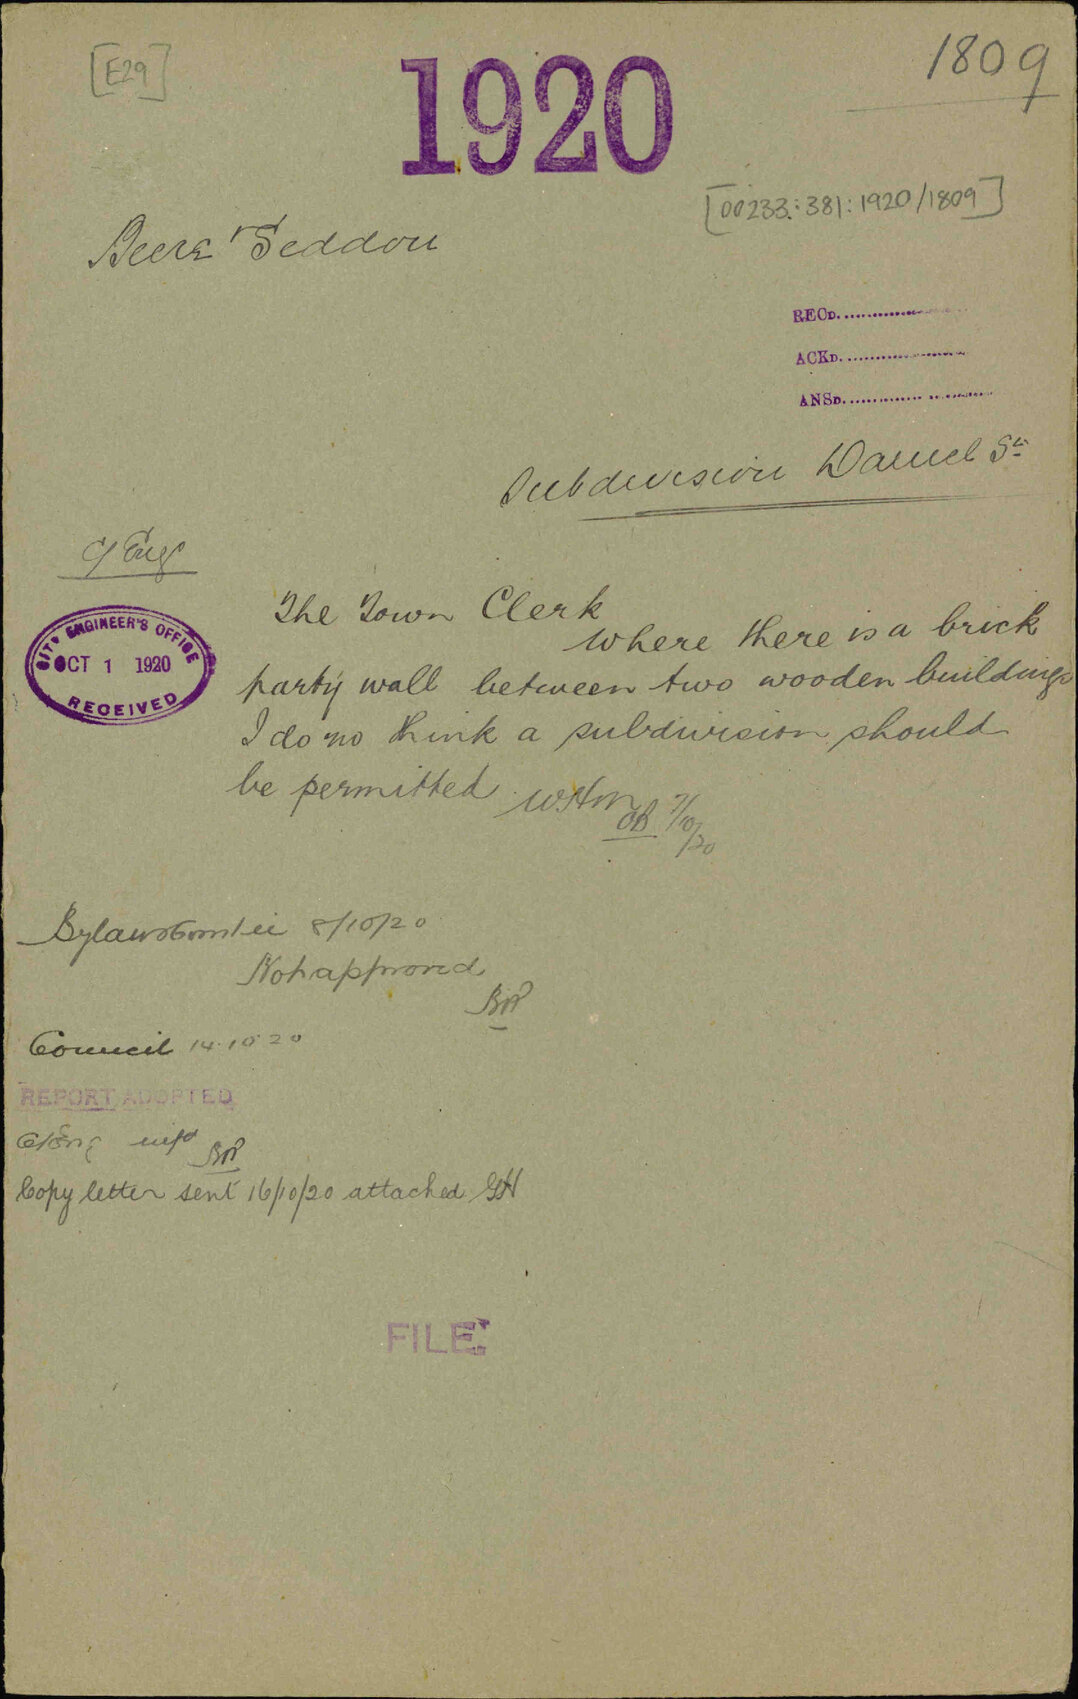 [E29]
1920
1809
[00233:381:1920/1809]
Beere & Seddon
RECD.
ACKD.
ANSD.
Subdivision Daniel St
C/Eng
CITY ENGINEER'S OFFICE
OCT 1 1920
RECEIVED
The Town Clerk
Where there is a brick
party wall between two wooden buildings
I do no think a subdivision should
be permitted
7/10/20
Bylaws Comtee 8/10/20
Not approved
Council 14.10.20
REPORT ADOPTED
C/Eng
Copy letter sent 16/10/20 attached GH
FILE